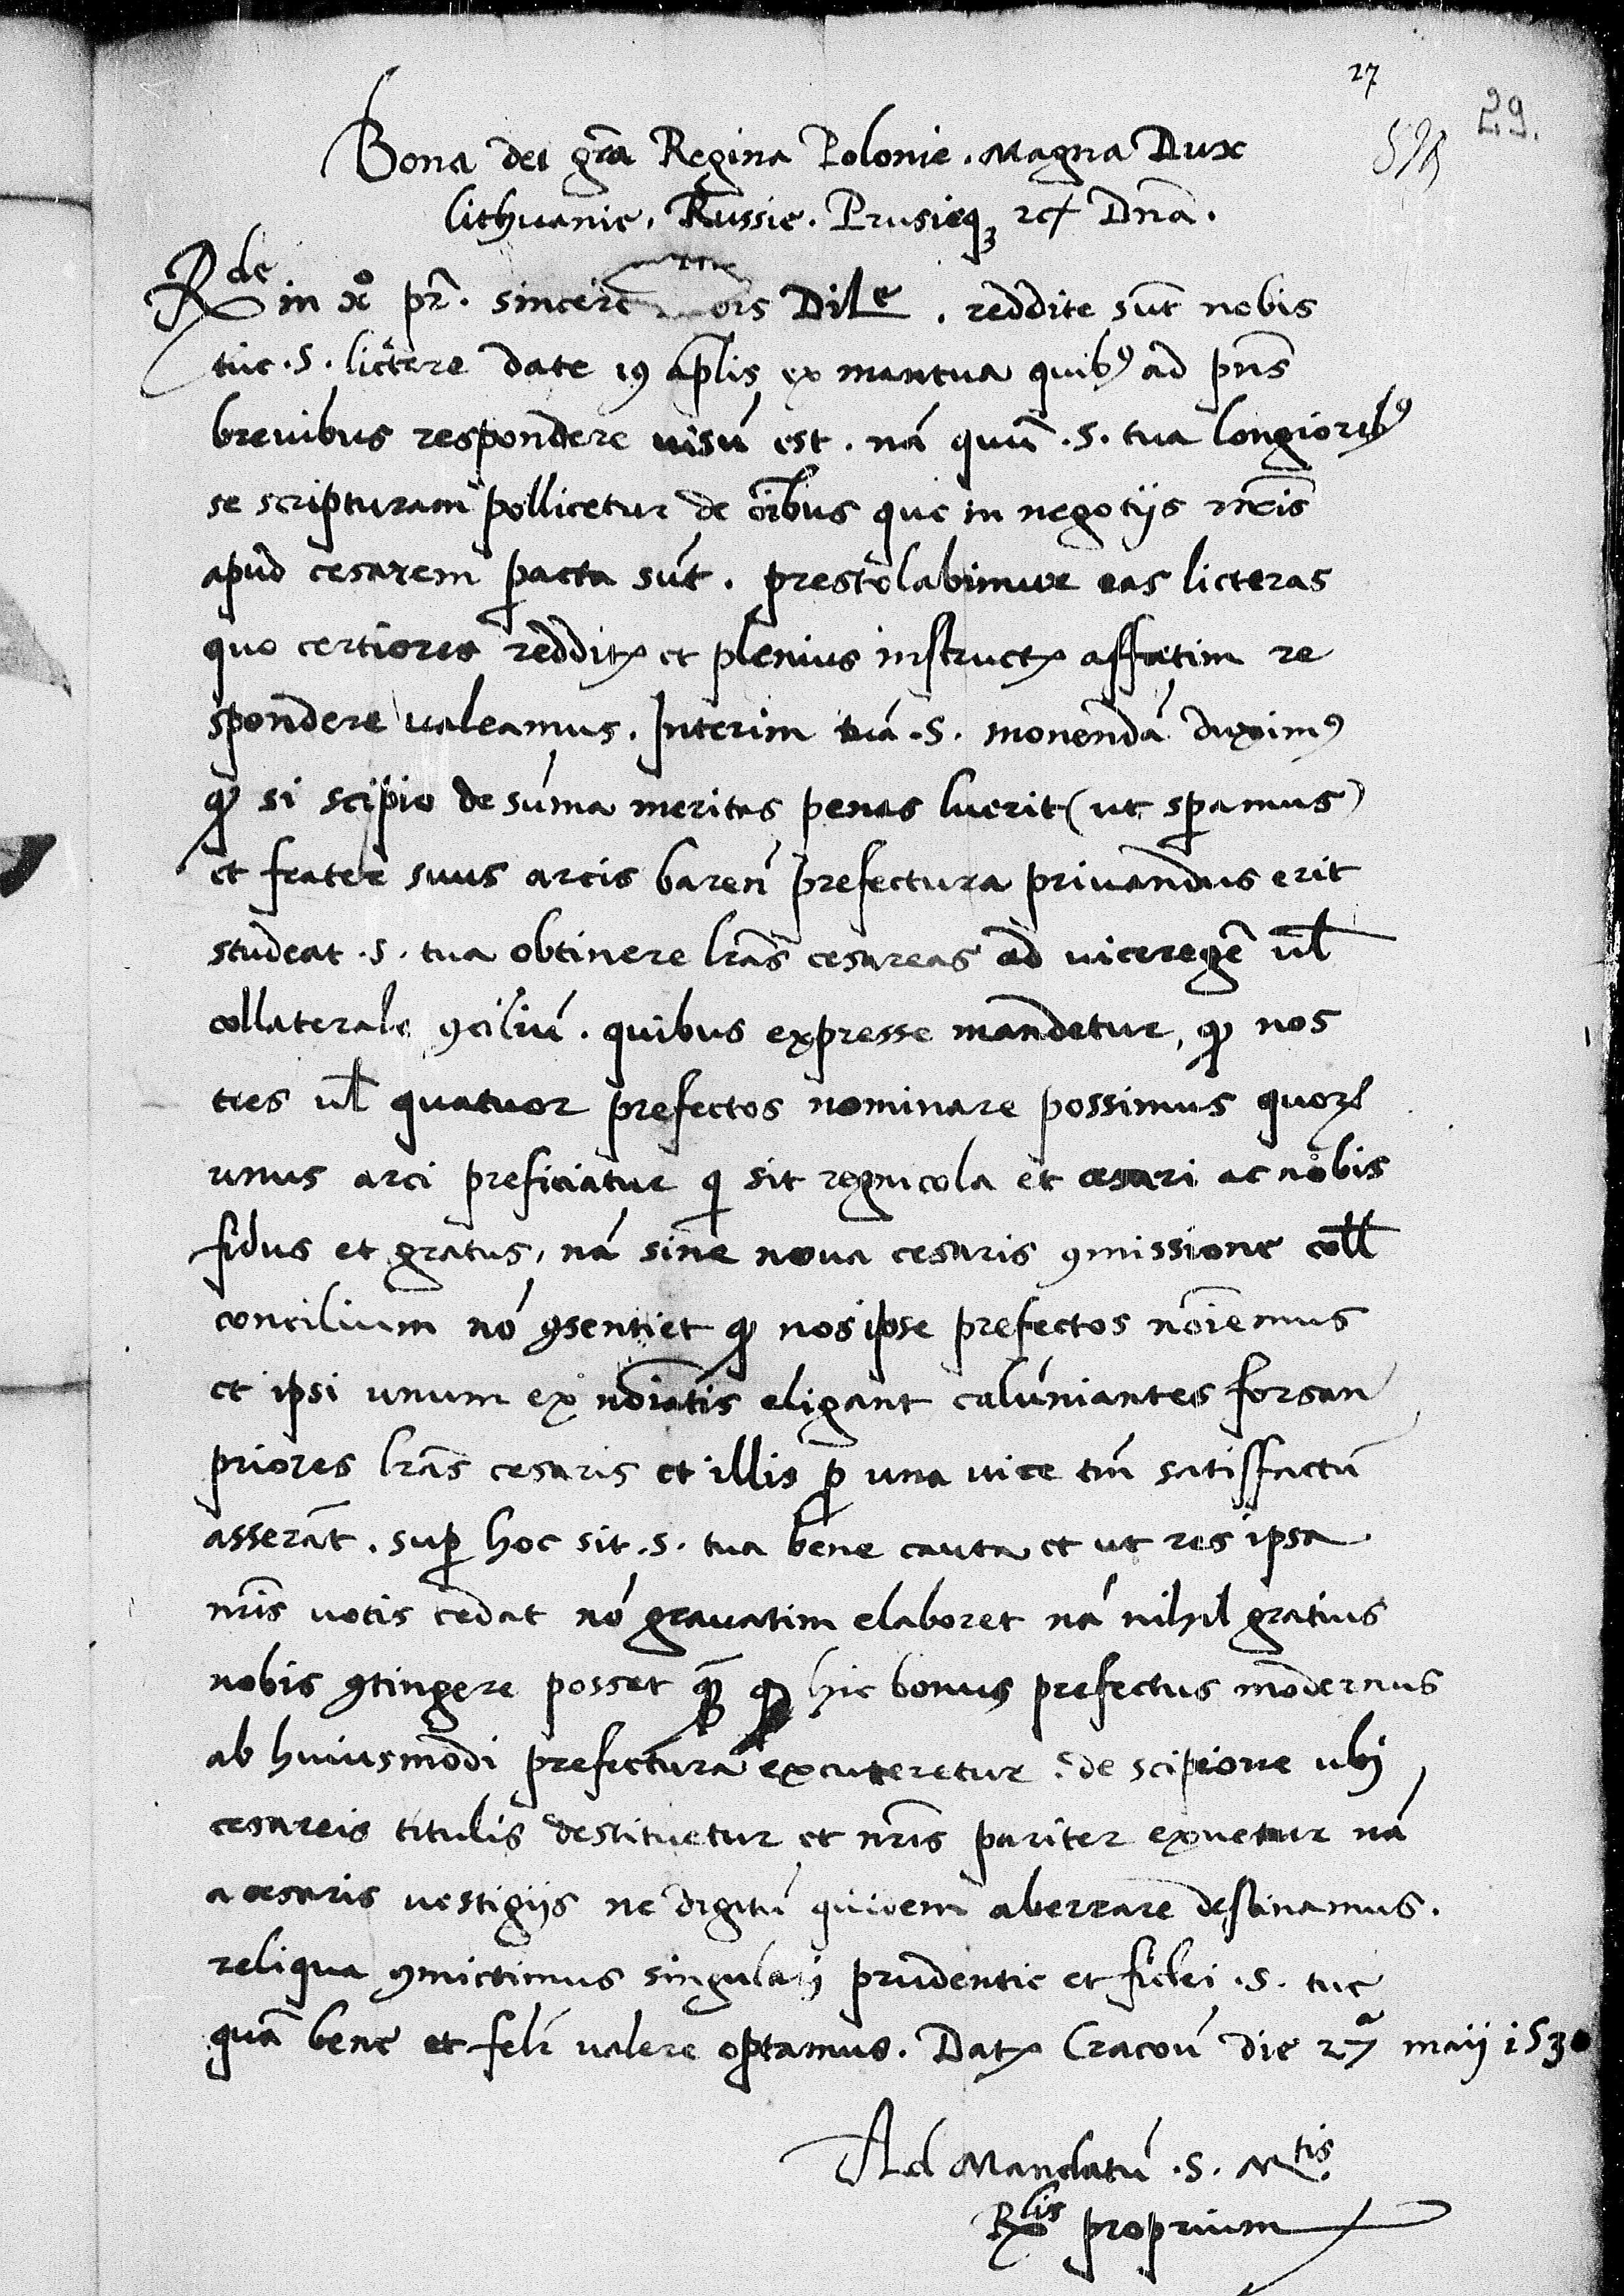 27
29.
Bona dei gr̃a Regina Polonie. Magna Dux
lithuanie. Russie. Prusieq₃ ⁊c̃ Dnã.
Rde in xº pr̃. sincere ors Dile. reddite sūt nobis
tue .S. lictere date 19 ap̃lis ex mantua quibꝰ ad pñs
breuibus respondere uisū est. nā quū .S. tua longioribꝰ
se scripturam pollicetur de oĩbus que in negotijs nr̃is
apud cesarem ꝑacta sūt. prestolabimur eas licteras
quo certiores redditꝭ et plenius instructꝭ affatim re
spondere ualeamus. Interim tuā .S. monendā duximꝰ
ꝙ si scipio de sūma meritas penas luerit (ut sꝑamus)
et frater suus arcis bareñ prefectura priuandus erit
studeat .S. tua obtinere lr̃as cesareas ad uiceregē ul̃
collaterale ꝯciliū. quibus expresse mandetur, ꝙ nos
tres ul̃ quatuor prefectos nominare possimus quoꝝ
unus arci preficiatur qͥ sit regnicola et cesari ac nobis
fidus et gratus, nā sine noua cesaris ꝯmissione coll̃
concilium nō ꝯsentiet ꝙ nos ipse prefectos nõiemus
et ipsi unum ex nõiatis eligant calūniantes forsan
priores lr̃as cesaris et illis ꝓ una uice tm̃ satisfactū
asserāt. suꝑ hoc sit .S. tua bene cauta et ut res ipsa
nr̃is uotis cedat nō grauatim elaboret nā nihil gratius
nobis ꝯtingere posset qȝ̃ ꝙ hic bonus prefectus modernus
ab huiusmodi prefectura excuteretur. de scipione ubi
cesareis titulis destituetur et nr̃is pariter exuetur nā
a cesaris uestigijs ne digitū quidem aberrare destinamus.
reliqua ꝯmictimus singulari prudentie et fidei .S. tue
quā bene et felr̃ ualere optamus. Datꝭ Cracoũ die 27ª maij 1530
Ad Mandatū .S. Mtis
Rlis proprium